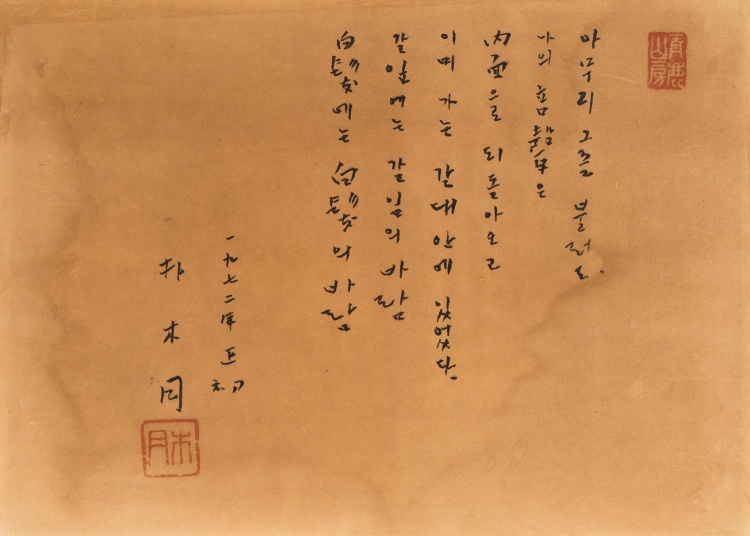 青鹿山房
아무리 그를 불러도
나의 音聲은
內面으로 되돌아오고
이미 가는 갈대안에 있었다.
갈잎에는 갈잎의 바람
白髮에는 白髮의 바람
一九七二年 正初
朴木月
木月